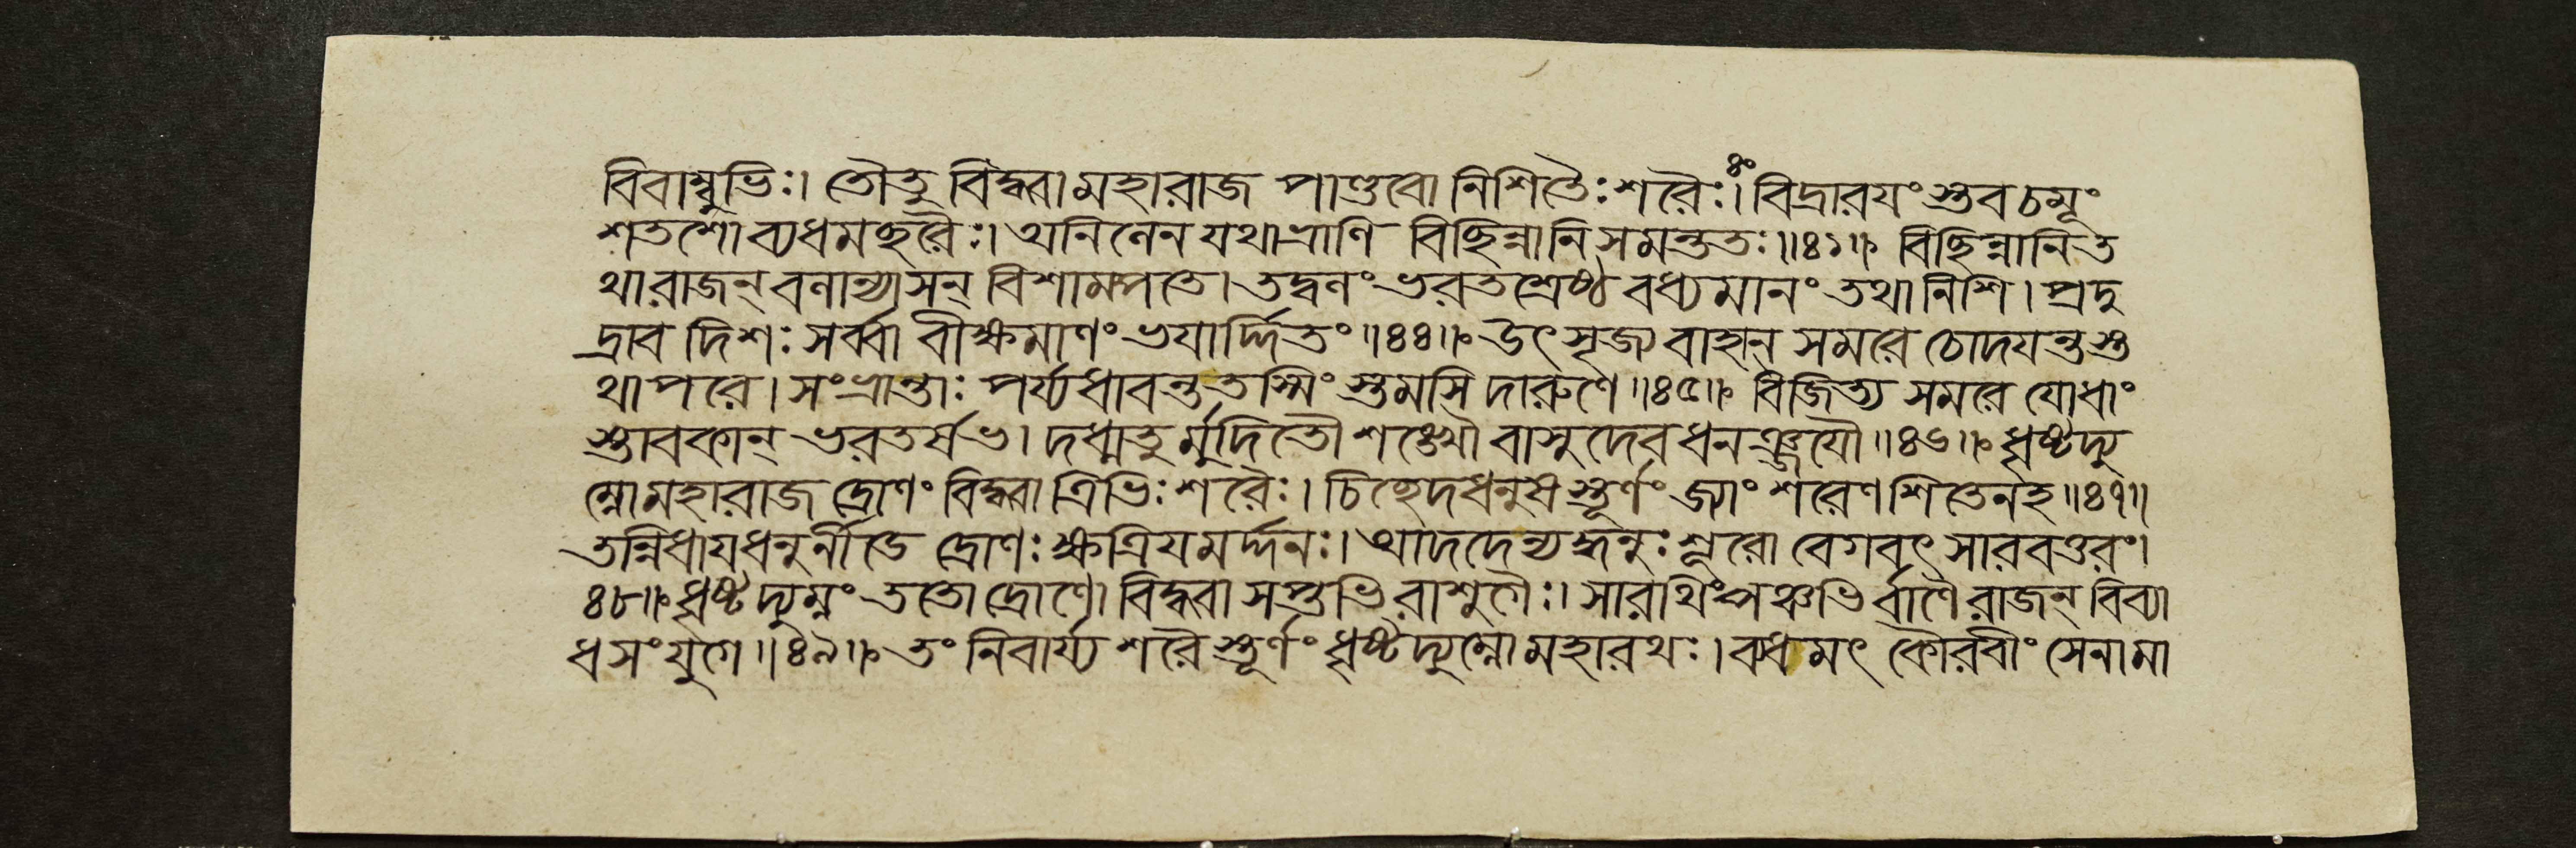 বিবাম্বুভিঃ। তৌতু বিদ্ধ্বা মহারাজ পাণ্ডবো নিশিতৈঃ শরৈঃ। বিদ্রারযংস্তব চমূং
শতশো ব্যধমচ্ছরৈঃ। অনিলেন যথাভ্রাণি বিছিন্নানি সমন্ততঃ॥৪১॥ বিছিন্নানি ত
থা রাজন্ বলান্যাসন্ বিশাম্পতে। তদ্বলং ভরতশ্রেষ্ঠ বধ্যমানং তথা নিশি। প্রদু
দ্রাব দিশঃ সর্ব্বা বীক্ষমাণং ভযার্দ্দিতং॥৪৪॥ উৎসৃজ্য বাহান্ সমরে চোদযন্তস্ত
থাপরে। সংভ্রান্তাঃ পর্য্যধাবন্ত তস্মিংস্তমসি দারুণে॥৪৫॥ বিজিত্য সমরে যোধাং
স্তাবকান্ ভরতর্ষভ। দধ্মতুর্মুদিতৌ শঙ্খৌ বাসুদেবধনঞ্জযৌ॥৪৬॥ ধৃষ্টদ্যু
ম্নো মহারাজ দ্রোণং বিদ্ধ্বা ত্রিভিঃ শরৈঃ। চিচ্ছেদ ধনুষস্তূর্ণং জ্যাং শরেণ শিতেন হ॥৪৭॥
তন্নিধায ধনুর্নীডে দ্রোণঃ ক্ষত্রিযমর্দ্দনঃ। আদদেন্যদ্ধনুঃ শূরো বেগবৎ সারবত্তরং।
৪৮॥ ধৃষ্টদ্যুম্নং ততো দ্রোণো বিদ্ধ্বা সপ্তভিরাশুগৈঃ। সারথিং পঞ্চভির্বাণৈ রাজন্ বিব্যা
ধ সংযুগে॥৪৯॥ তং নিবার্য্য শরৈস্তূর্ণং ধৃষ্টদ্যুম্নো মহারথঃ। ব্যধমৎ কৌরবীং সেনামা